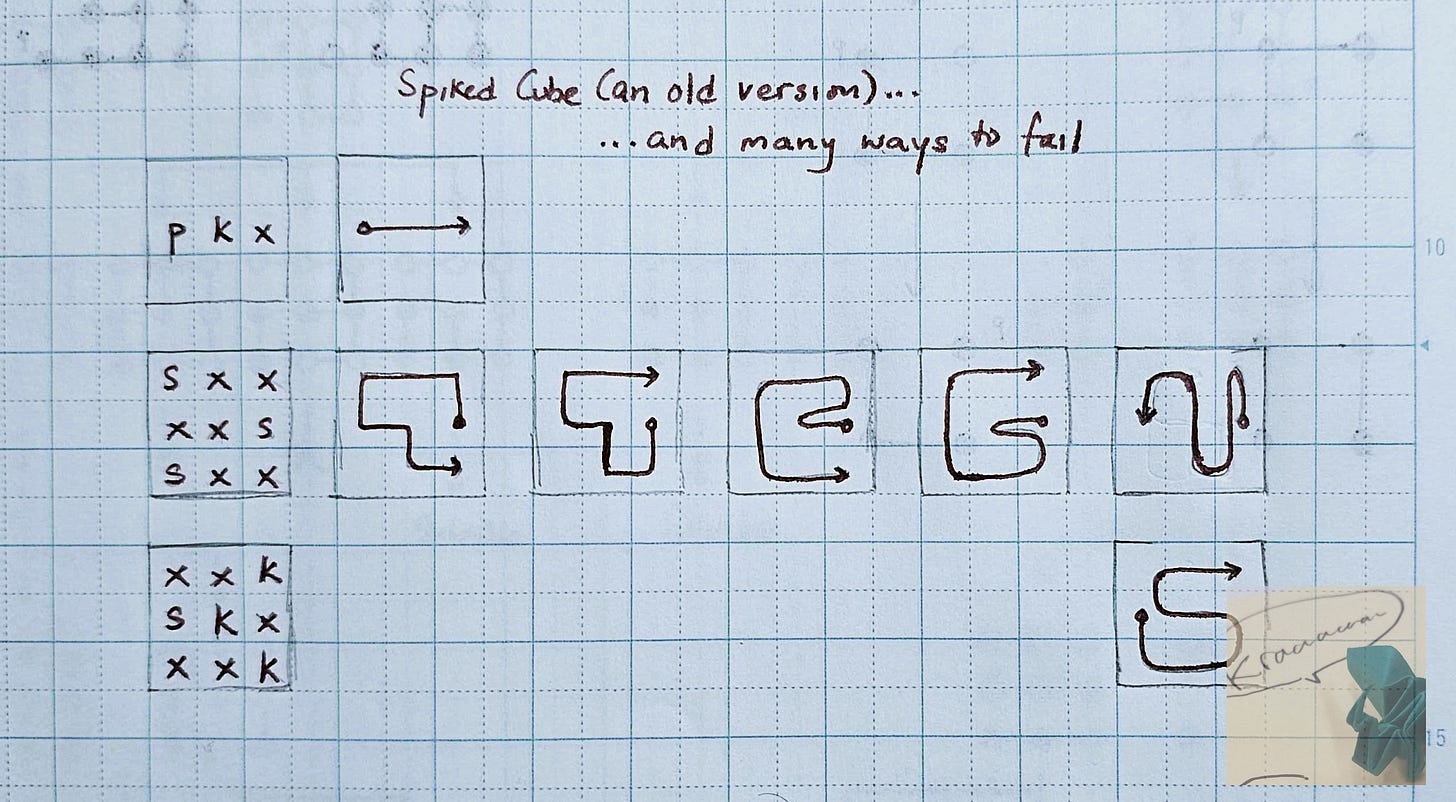 Spiked Cube (an old version)...
...and many ways to fail
p k x
10
s x x
x x s
s x x
x x k
s k x
x x k
15